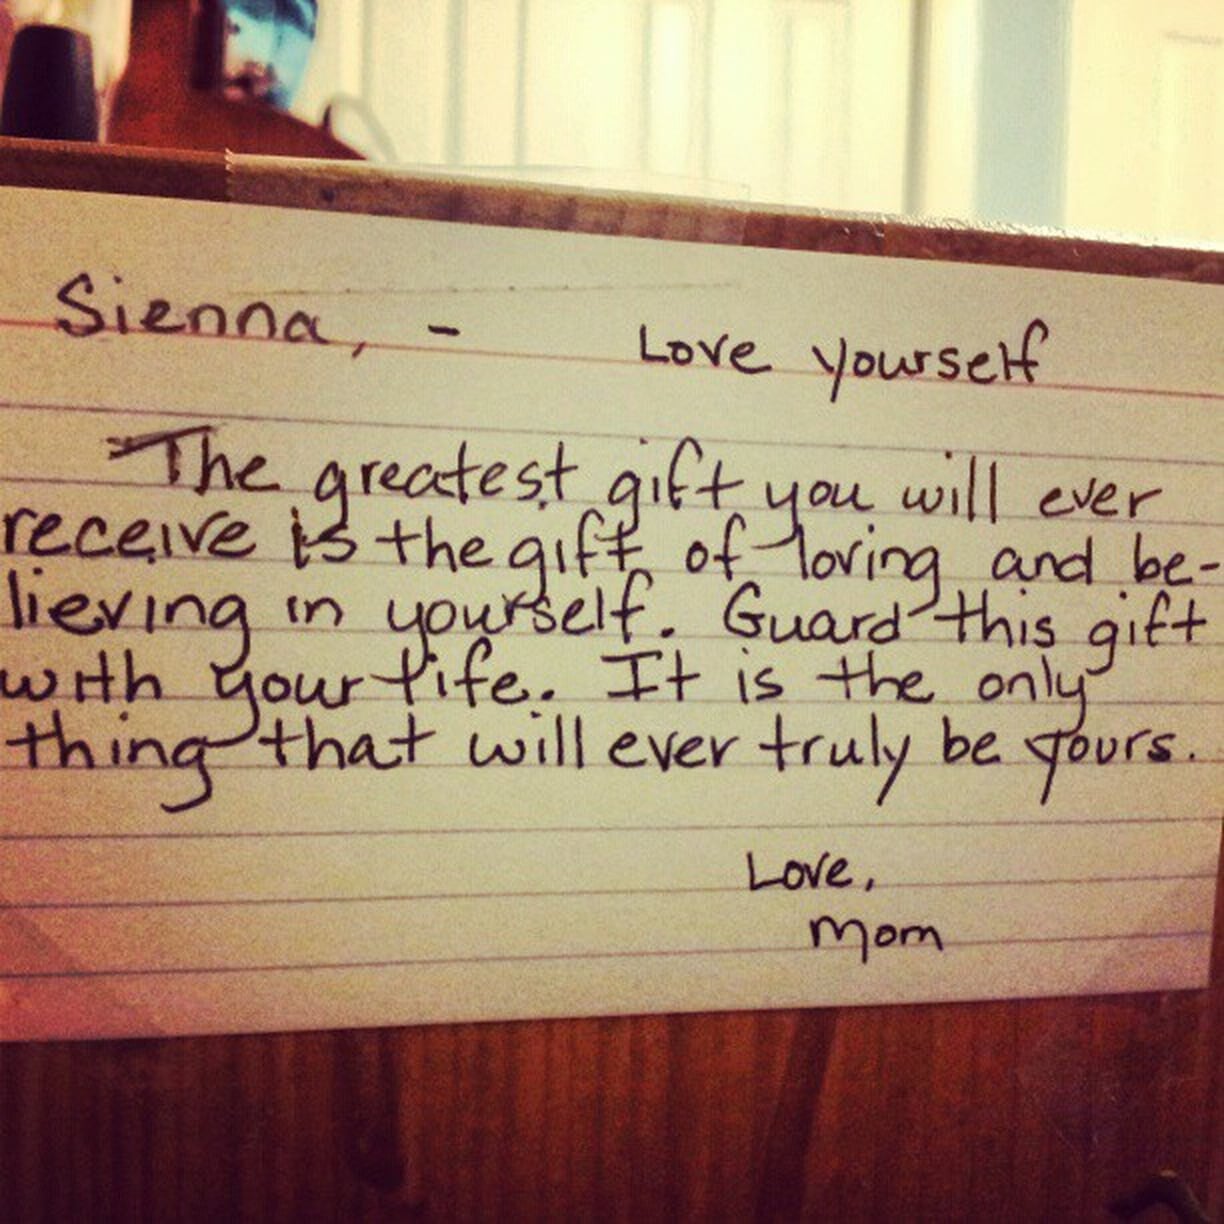 Sienna, - Love yourself
The greatest gift you will ever
receive is the gift of loving and be-
lieving in yourself. Guard this gift
with your life. It is the only
thing that will ever truly be yours.
Love,
Mom